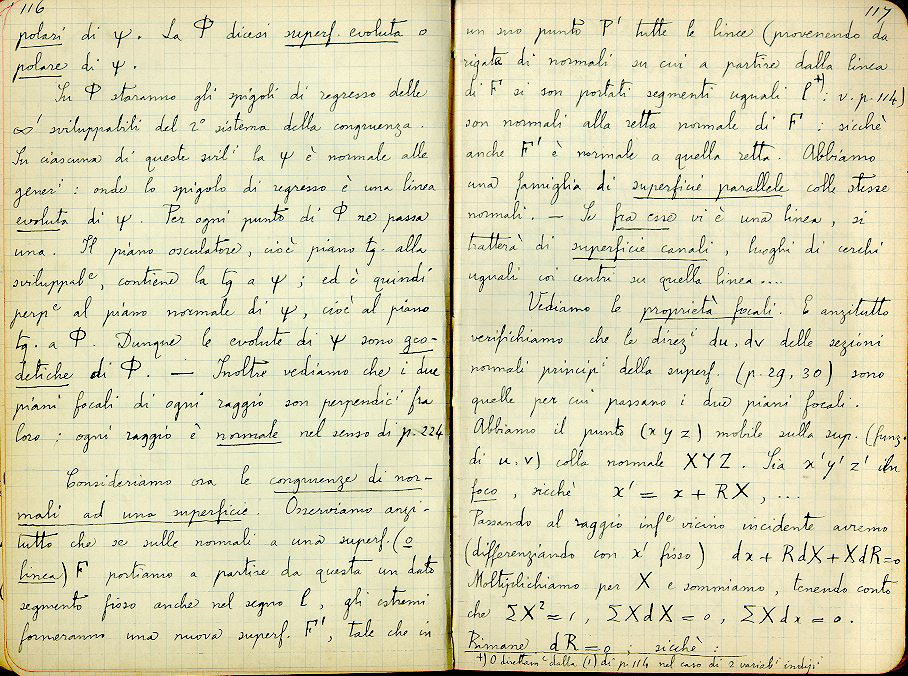 116
polari di ψ. La Φ dicesi superf. evoluta o
polare di ψ.
Su Φ staranno gli spigoli di regresso delle
∞¹ sviluppabili del 2° sistema della congruenza.
Su ciascuna di queste svil¹ la ψ è normale alle
gener¹: onde lo spigolo di regresso è una linea
evoluta di ψ. Per ogni punto di Φ ne passa
una. Il piano osculatore, cioè piano tg. alla
sviluppabᵉ, contiene la tg a ψ; ed è quindi
perpᵉ al piano normale di ψ, cioè al piano
tg. a Φ. Dunque le evolute di ψ sono geo-
detiche di Φ. — Inoltre vediamo che i due
piani focali di ogni raggio son perpendici fra
loro; ogni raggio è normale nel senso di p. 224
Consideriamo ora le congruenze di nor-
mali ad una superficie. Osserviamo anzi-
tutto che se sulle normali a una superf. (o
linea) F portiamo a partire da questa un dato
segmento fisso anche nel segno l, gli estremi
forneranno una nuova superf. F', tale che in
117
un suo punto P' tutte le linee (provenendo da
rigate di normali su cui a partire dalla linea
di F si son portati segmenti uguali l⁺⁾: v. p. 114)
son normali alla retta normale di F: sicchè
anche F' è normale a quella retta. Abbiamo
una famiglia di superficie parallele colle stesse
normali. — Se fra esse vi è una linea, si
tratterà di superficie canali, luoghi di cerchi
uguali coi centri su quella linea....
Vediamo le proprietà focali. E anzitutto
verifichiamo che le direz¹ du, dv delle sezioni
normali princip¹ della superf. (p. 29, 30) sono
quelle per cui passano i due piani focali.
Abbiamo il punto (x y z) mobile sulla sup. (funz.
di u, v) colla normale XYZ. Sia x' y' z' il
foco, sicchè x' = x + RX, ...
Passando al raggio infᵉ vicino incidente avremo
(differenziando con x' fisso) dx + RdX + XdR = 0
Moltiplichiamo per X e sommiamo, tenendo conto
che ΣX² = 1, ΣXdX = 0, ΣXdx = 0.
Rimane dR = 0; sicchè:
+) O direttamᵉ dalla (1) di p. 114 nel caso di 2 variabⁱ indipⁱ